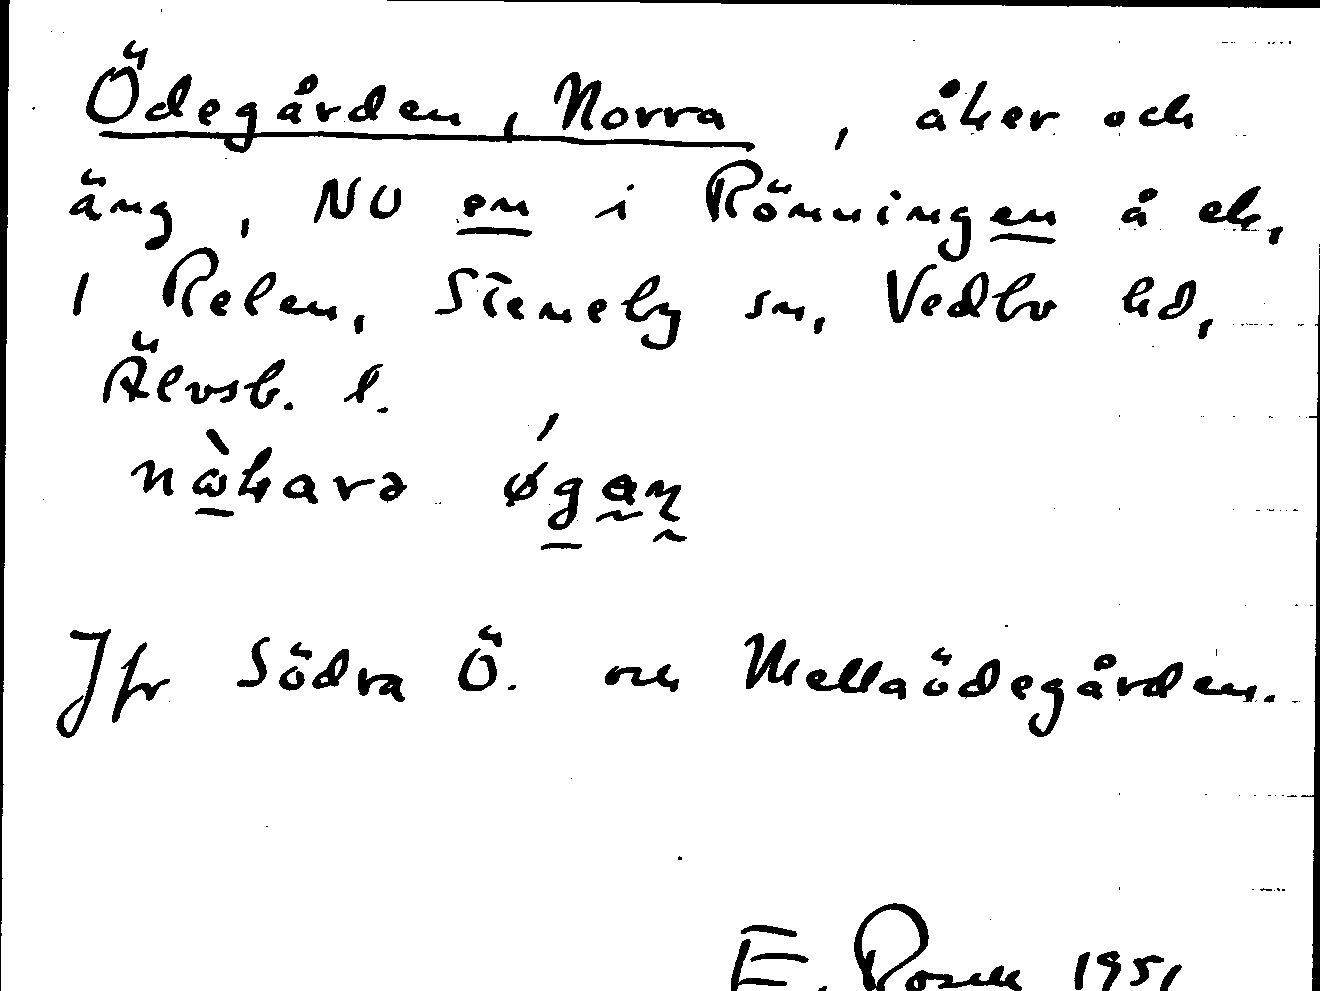 Ödegården, Norra, åker och
äng, NO en i Rönningen å ek,
1 Relen, Steneby sn, Vedbo hd,
Älvsb. l.
Jfr Södra Ö. och Mellaödegården.
E. Rosell 1951